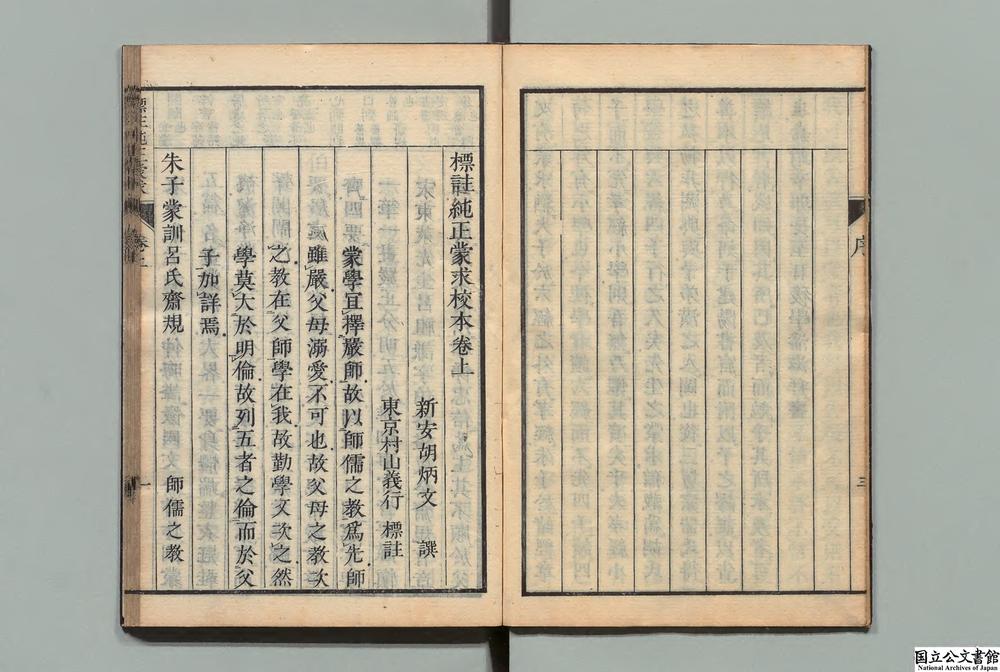 序
三
標註純正蒙求校本卷上
新安胡炳文 譔
東京村山義行 標註
蒙學宜擇嚴師故以師儒之教爲先師
雖嚴父母溺愛不可也故父母之教次
之教在父師學在我故勤學文次之然
學莫大於明倫故列五者之倫而於父
子加詳焉
朱子蒙訓呂氏齋規 師儒之教
卷上
一
国立公文書館
National Archives of Japan